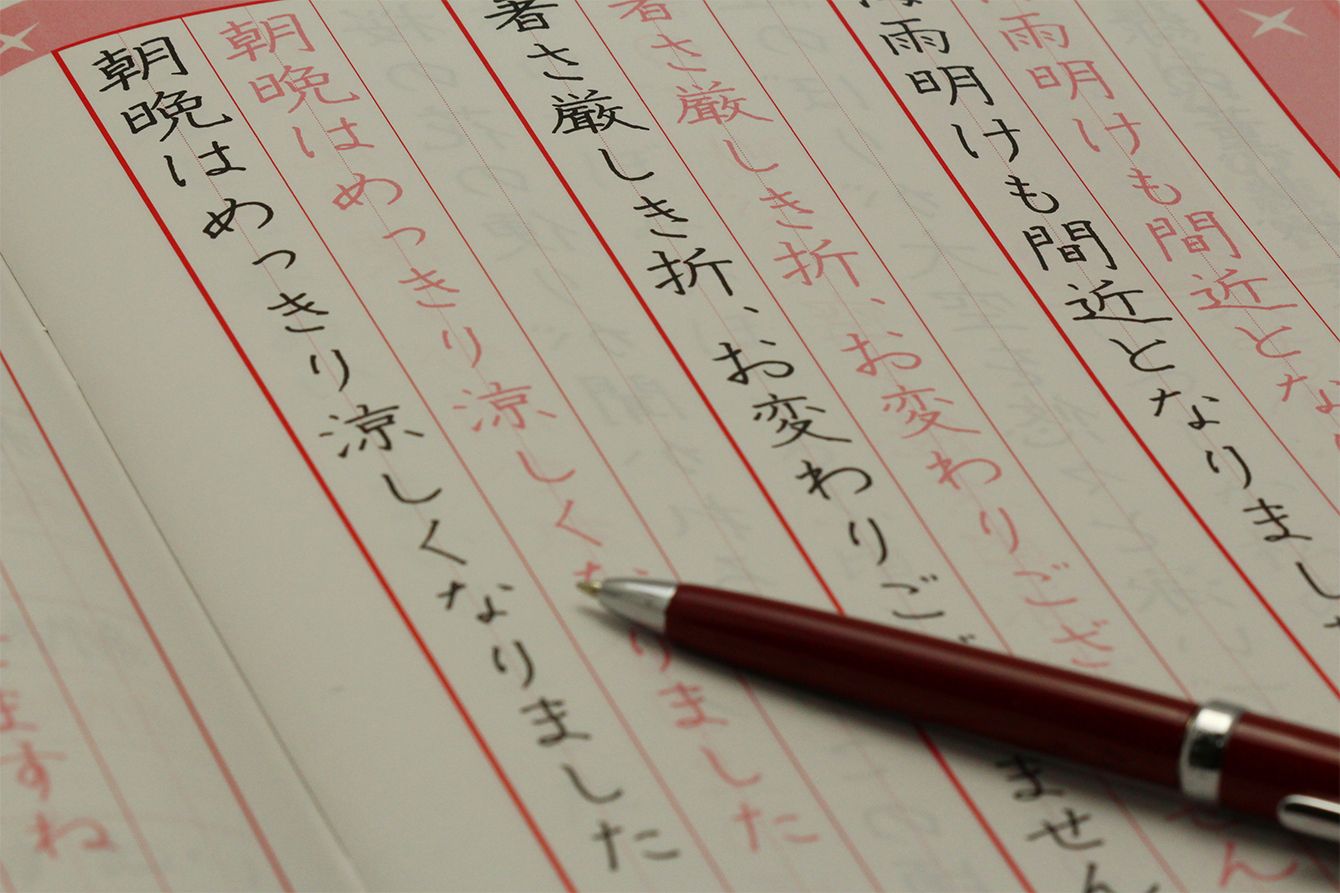 雨明けも間近とな
雨明けも間近となりまし
暑さ厳しき折、お変わりござせん
暑さ厳しき折、お変わりごません
朝晩はめっきり涼しくなりました
朝晩はめっきり涼しくなりました
ますね